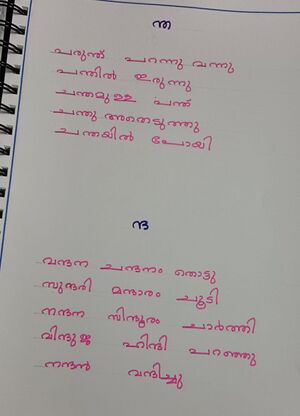 ന്ത
പരുന്ത് പറന്നു വന്നു
പന്തിൽ ഇരുന്നു
ചന്തമുള്ള പന്ത്
ചന്തു അതെടുത്തു
ചന്തയിൽ പോയി
ന്ദ
വന്ദന ചന്ദനം തൊട്ടു
സുന്ദരി മന്ദാരം ചൂടി
നന്ദന സിന്ദൂരം ചാർത്തി
വിന്ദുജ ഹിന്ദി പറഞ്ഞു
നന്ദൻ വന്ദിച്ചു